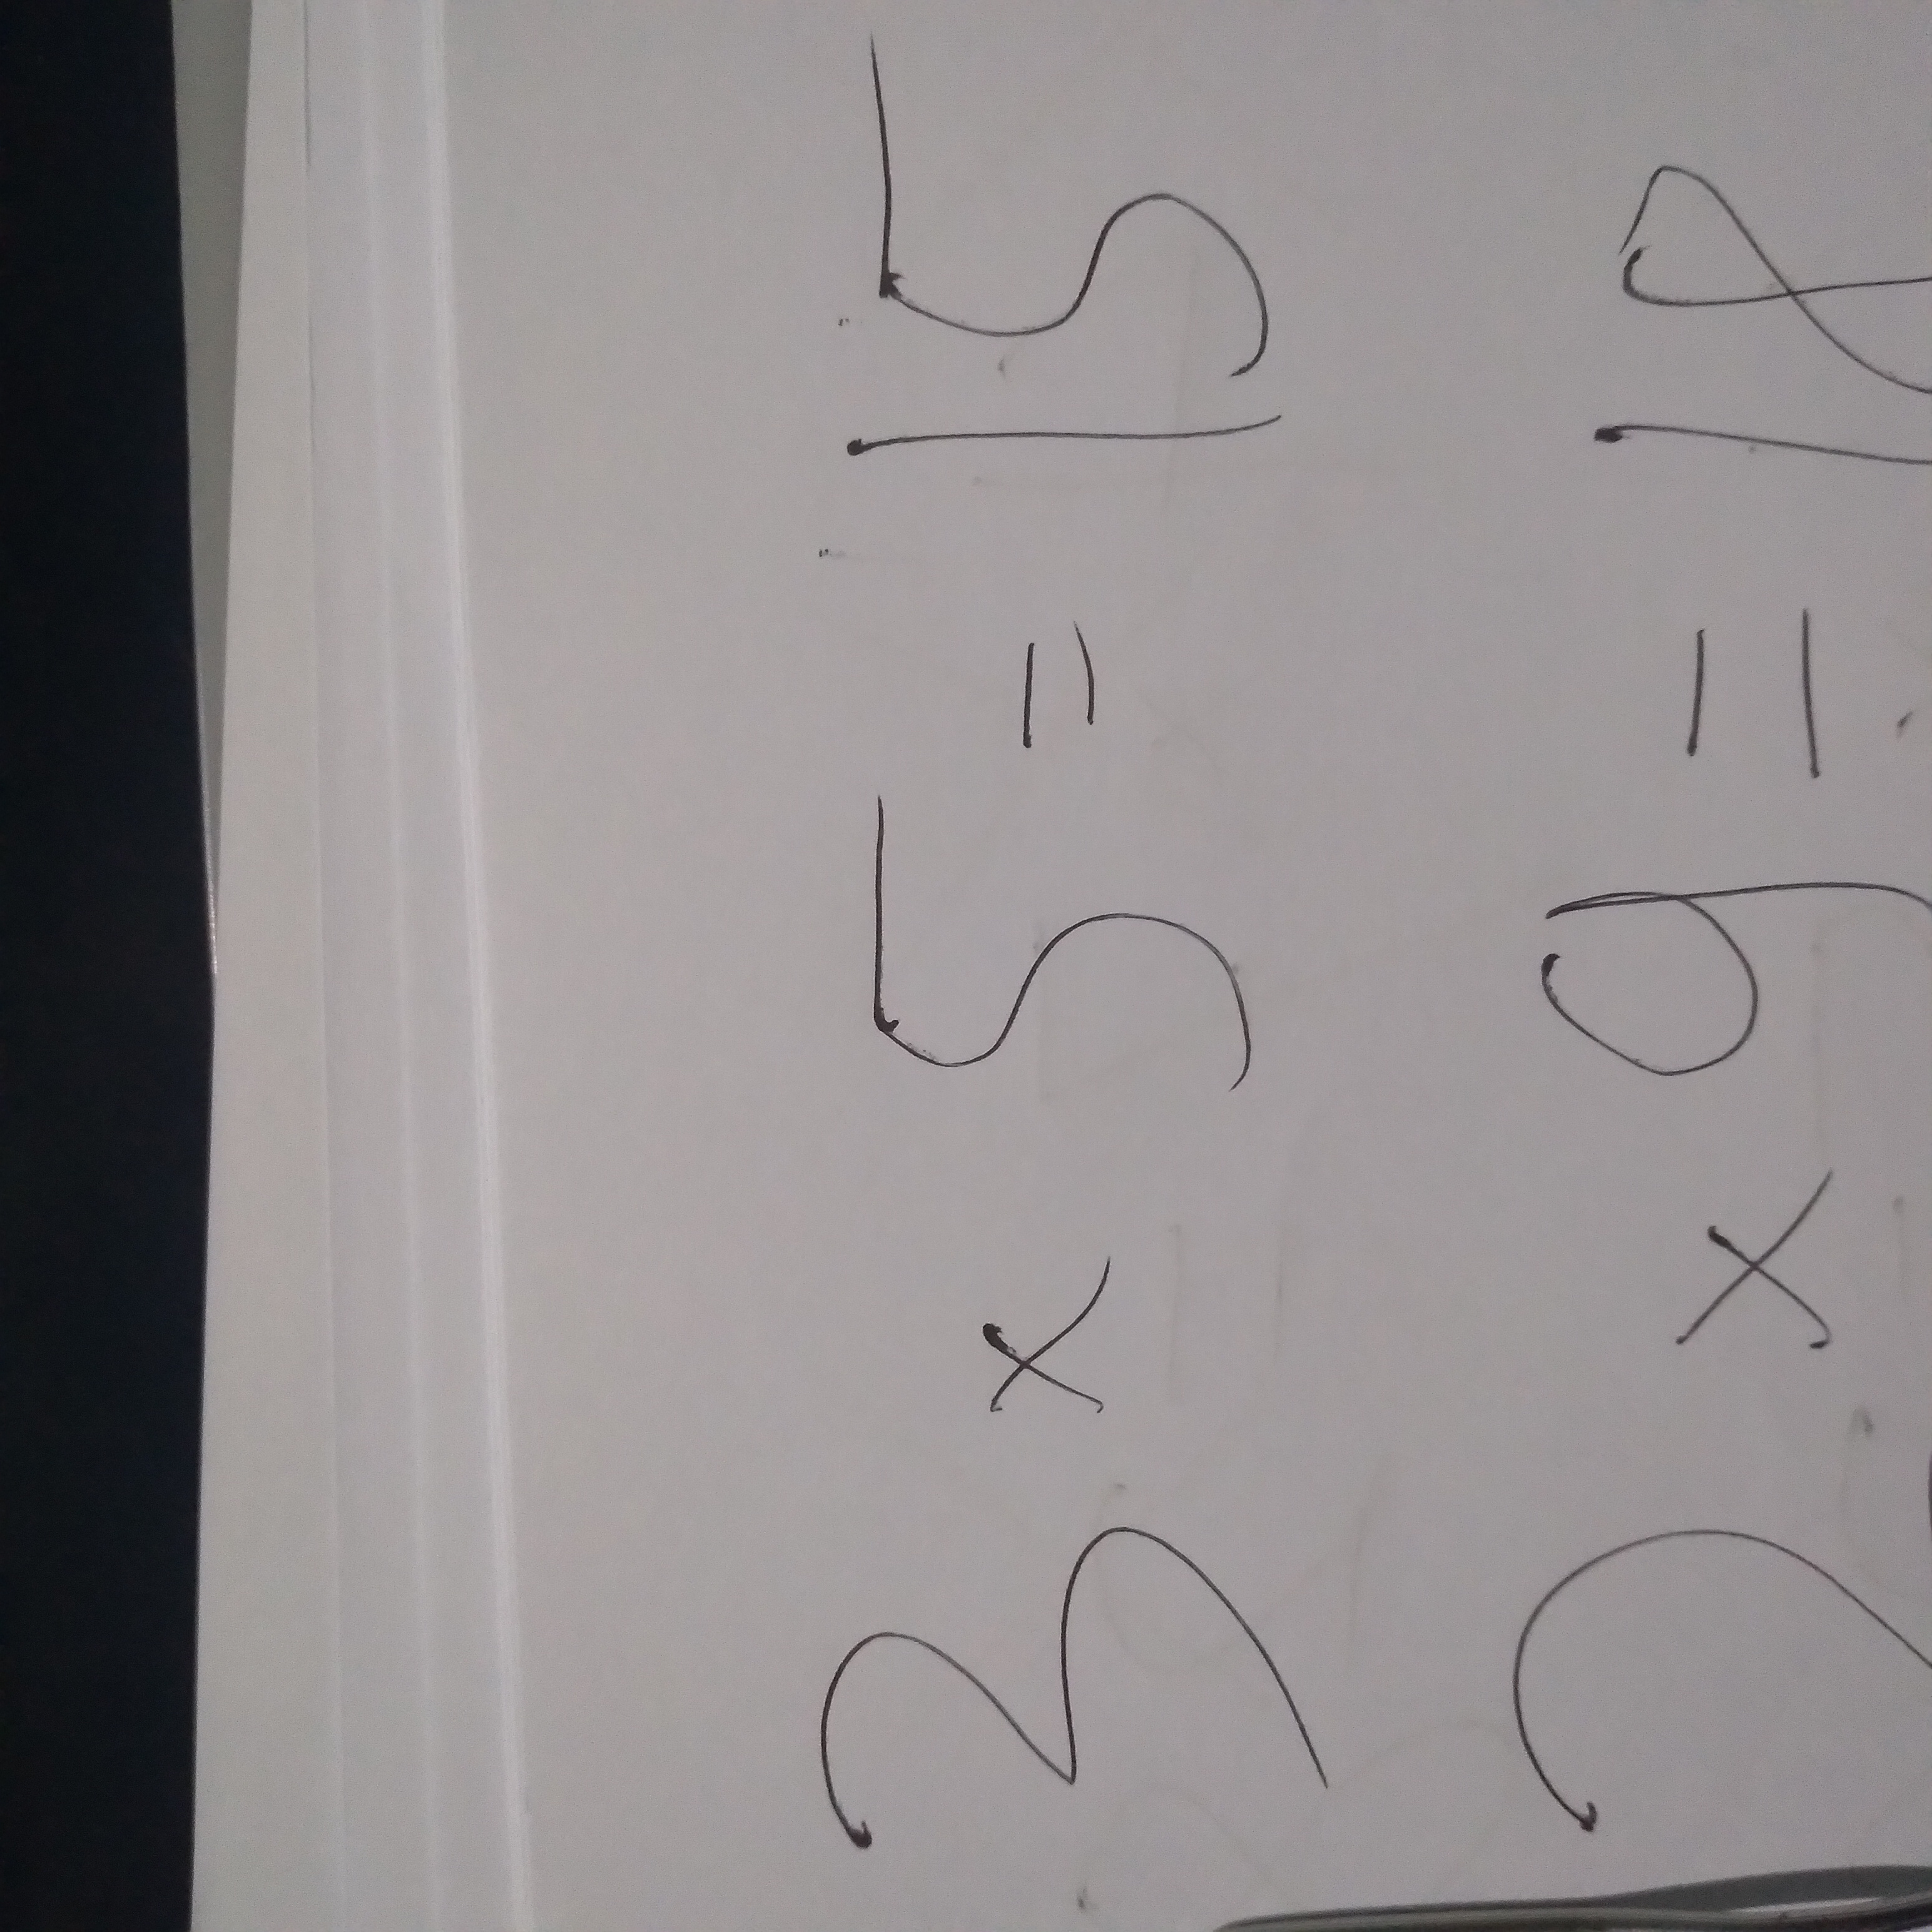 3 × 5 = 15
2 × 9 = 18